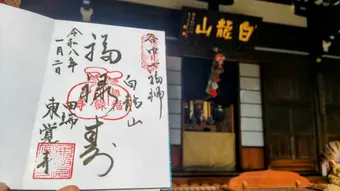 白龍山
谷中七福神
白龍山
福禄寿
田端
東覚寺
令和八年
一月二日